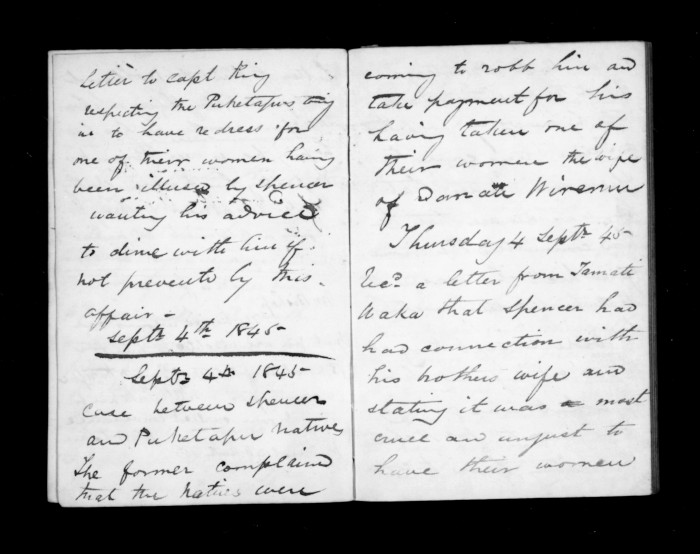 Letter to Capt King
respecting the Puketapus
in to have redress for
one of their women having
been illused by Spencer
wanting his advice
to dine with him if
not prevented by this
affair -
Septr 4th 1845-
Septr 4th 1845
Case between Spencer
and Puketapu Natives
The former complained
that the Natives were
coming to robb him and
take payment for his
having taken one of
their women the wife
of Wiremu
Thursday 4 Septr 45
Recd a letter from Tamati
Waka that Spencer had
had connection with
his brothers wife and
stating it was a most
cruel and unjust to
have their women